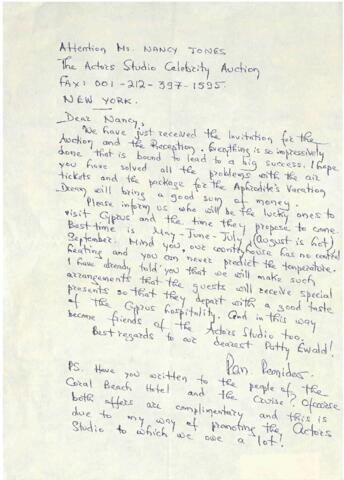 Attention Ms. NANCY JONES
The Actors Studio Celebrity Auction
FAX: 001-212-397-1595
NEW YORK.
Dear Nancy,
We have just received the Invitation for the
Auction and the Reception. Everything is so impressively
done that is bound to lead to a big success. I hope
you have solved all the problems with the air
tickets and the package for the Aphrodite's Vacation
Dream will bring a good sum of money.
Please inform us who will be the lucky ones to
visit Cyprus and the time they propose to come.
Best time is May-June-July (August is hot)
September. Mind you, our country house has no central
heating and you can never predict the temperature.
I have already told you that we will make such
arrangements that the guests will receive special
presents so that they depart with a good taste
of the Cyprus hospitality. And in this way
become friends of the Actors Studio too.
Best regards to our dearest Patty Ewald!
PS. Have you written to the people of the
Coral Beach Hotel and the Cruise? Ofcourse
both offers are complimentary and this is
due to my way of promoting the Actors
Studio to which we owe a lot!